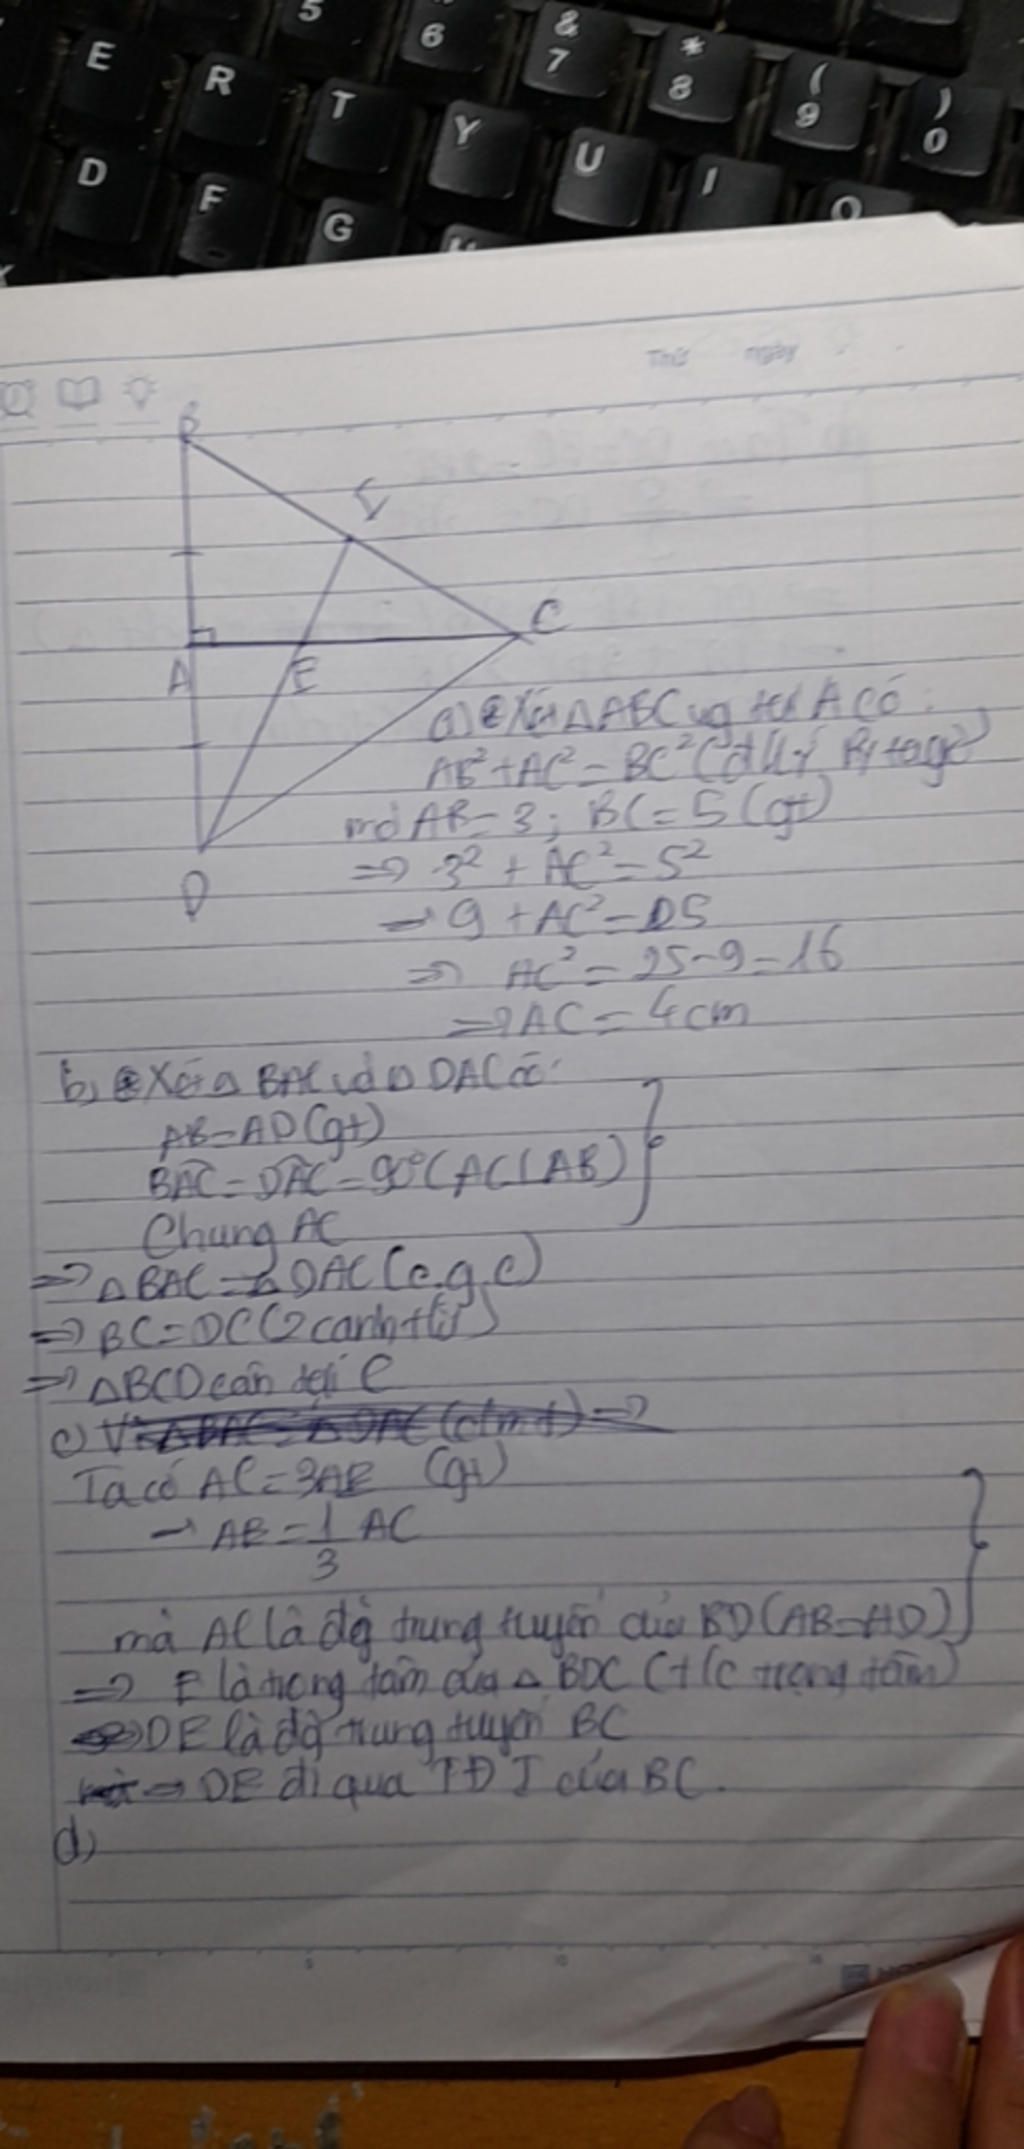 5
6
&
7
*
8
(
9
)
0
E
R
T
Y
U
I
O
D
F
G
Thứ ngày
B
I
C
A
E
D
a) Xét △ABC vg tại A có:
AB²+AC²=BC² (đ lí Pytago)
mà AB=3; BC=5 (gt)
=> 3² + AC²=5²
=> 9 + AC²=25
=> AC²=25-9=16
=> AC=4cm
b, Xét △ BAC và △ DAC có:
AB=AD(gt)
BAC=DAC=90°(AC⊥AB)
Chung AC
=> △BAC=△DAC(c.g.c)
=> BC=DC(2 cạnh tứ)
=> △BCD cân tại C
c) Vì △BAC=△DAC (cmt) =>
Ta có AC=3AE (gt)
→ AE=1/3 AC
mà AC là đg trung tuyến của BD(AB=AD)
=> E là trọng tâm của △ BDC (t/c trọng tâm)
=> DE là đg trung tuyến BC
=> DE đi qua TĐ I của BC.
d,
5
10
15